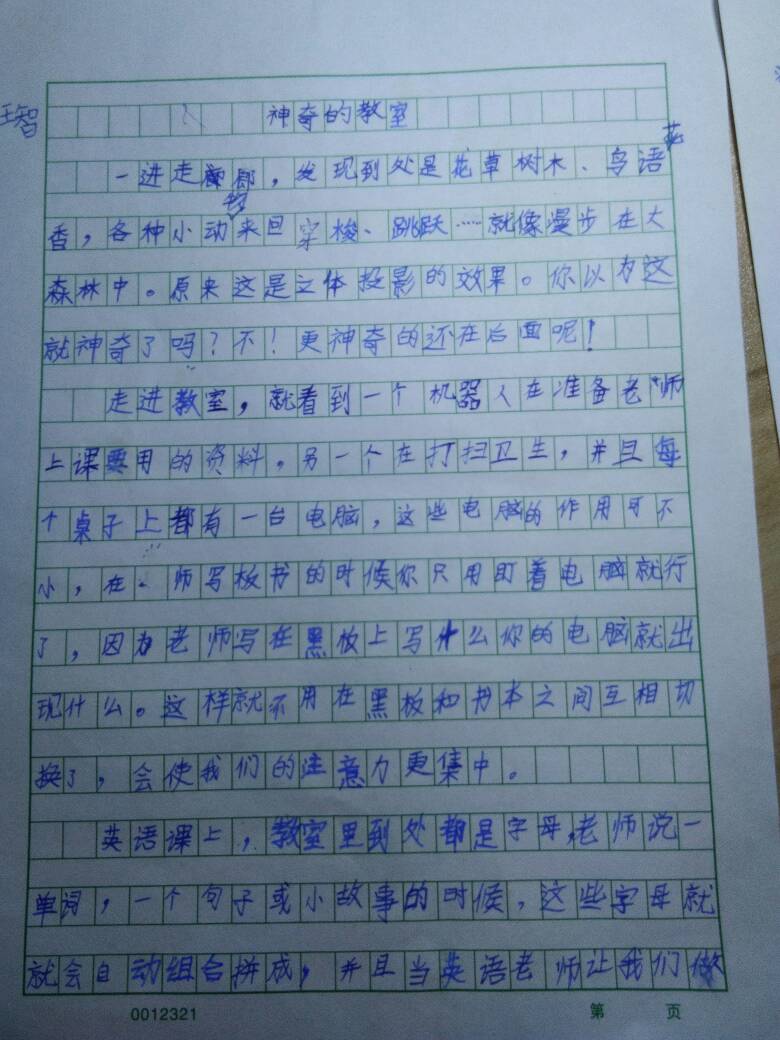 王智
神奇的教室
一进走廊，发现到处是花草树木、鸟语花
香，各种小动物来回穿梭、跳跃……就像漫步在大
森林中。原来这是立体投影的效果。你以为这
就神奇了吗？不！更神奇的还在后面呢！
走进教室，就看到一个机器人在准备老师
上课要用的资料，另一个在打扫卫生，并且每
个桌子上都有一台电脑，这些电脑的作用可不
小，在 师写板书的时候你只用盯着电脑就行
了，因为老师写在黑板上写什么你的电脑就出
现什么。这样就不用在黑板和书本之间互相切
换了，会使我们的注意力更集中。
英语课上，教室里到处都是字母，老师说一
单词，一个句子或小故事的时候，这些字母就
就会自动组合拼成，并且当英语老师让我们做
0012321
第 页